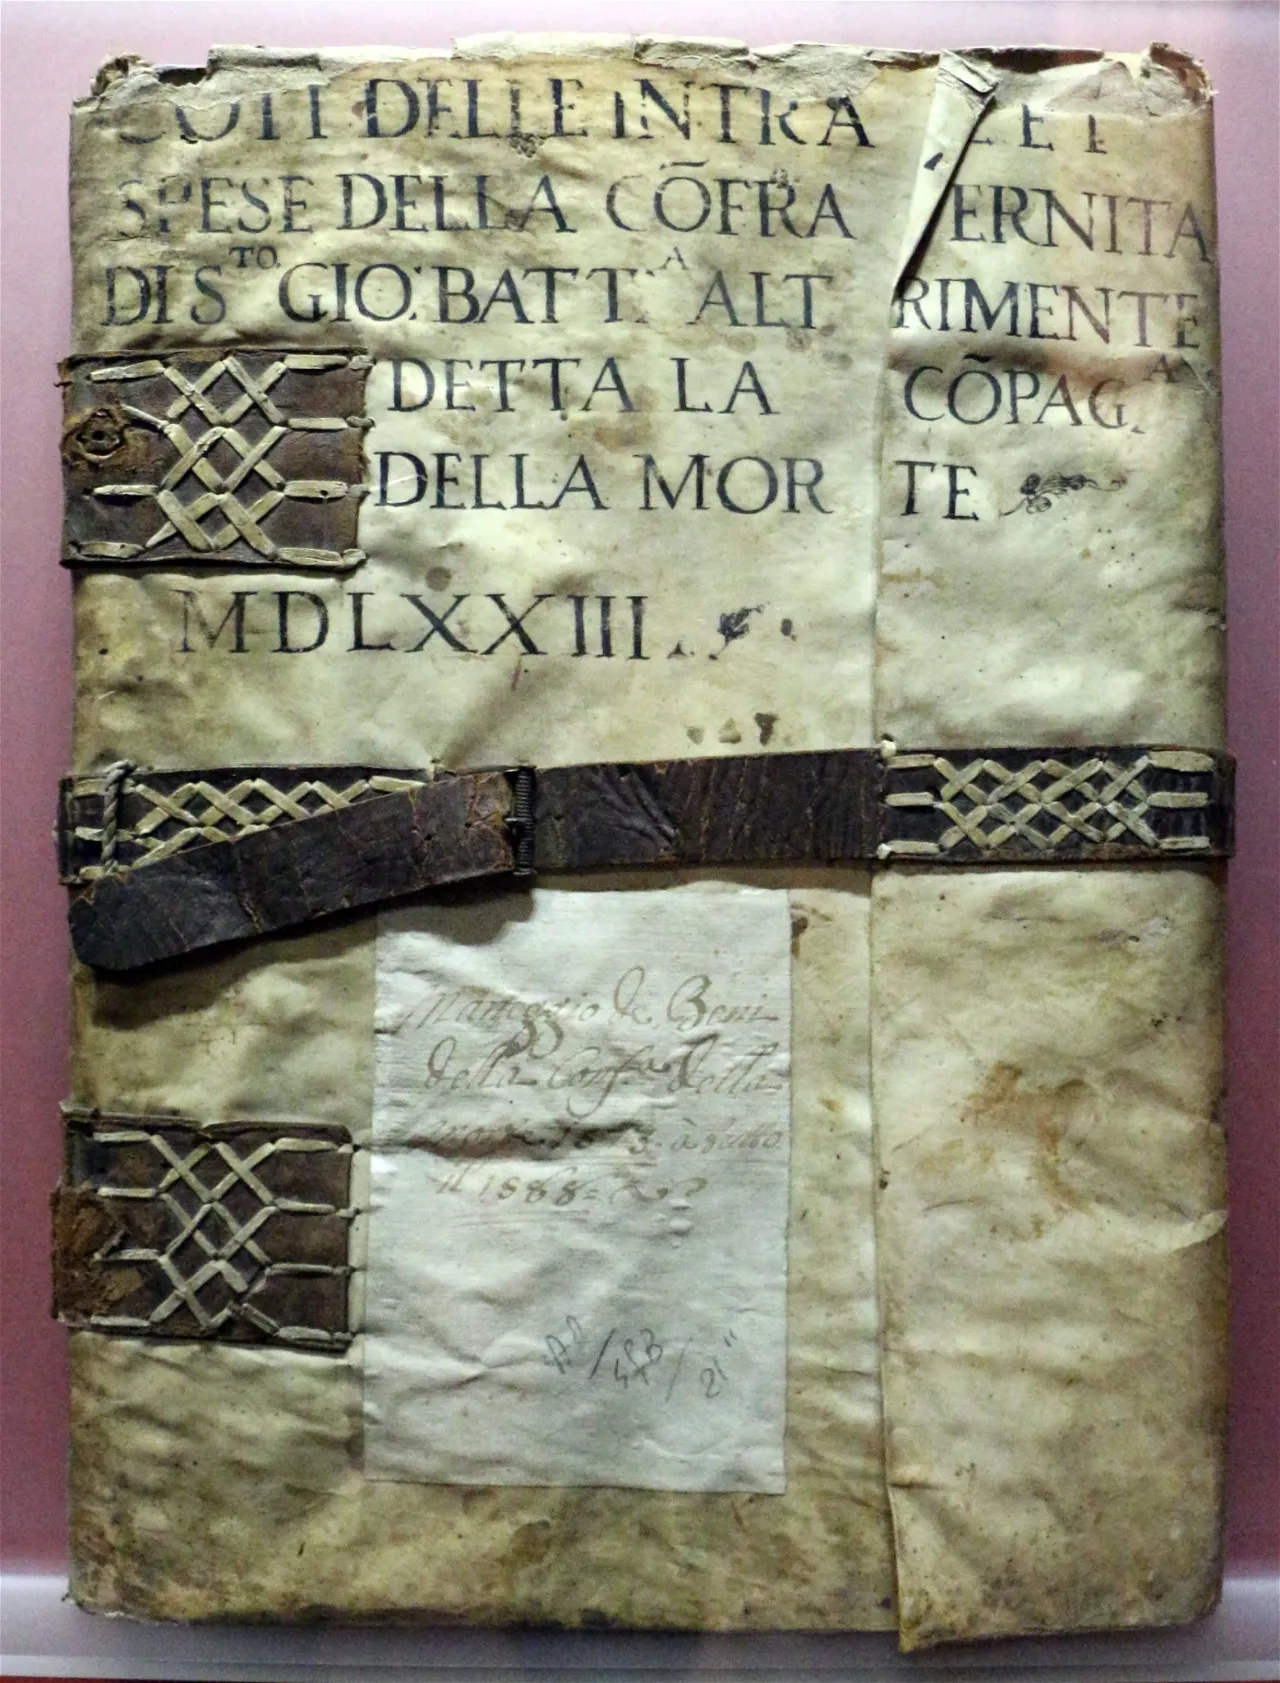 DELLE INTRA E E
SPESE DELLA CÕFRA ERNITA
DI S.TO GIO: BATT.A ALT RIMENTE
DETTA LA CÕPAG.A
DELLA MOR TE
MDLXXIII.
Maneggio de Beni
della Conf.a della
à tutto
il 1588=
21"